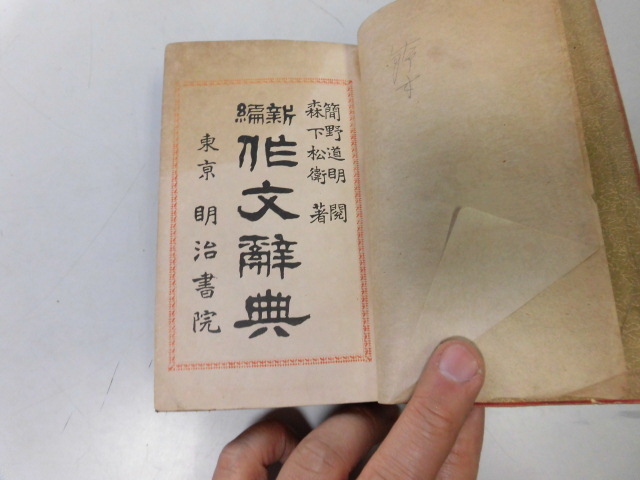 簡野道明 閲
森下松衛 著
新編
作文辭典
東京 明治書院